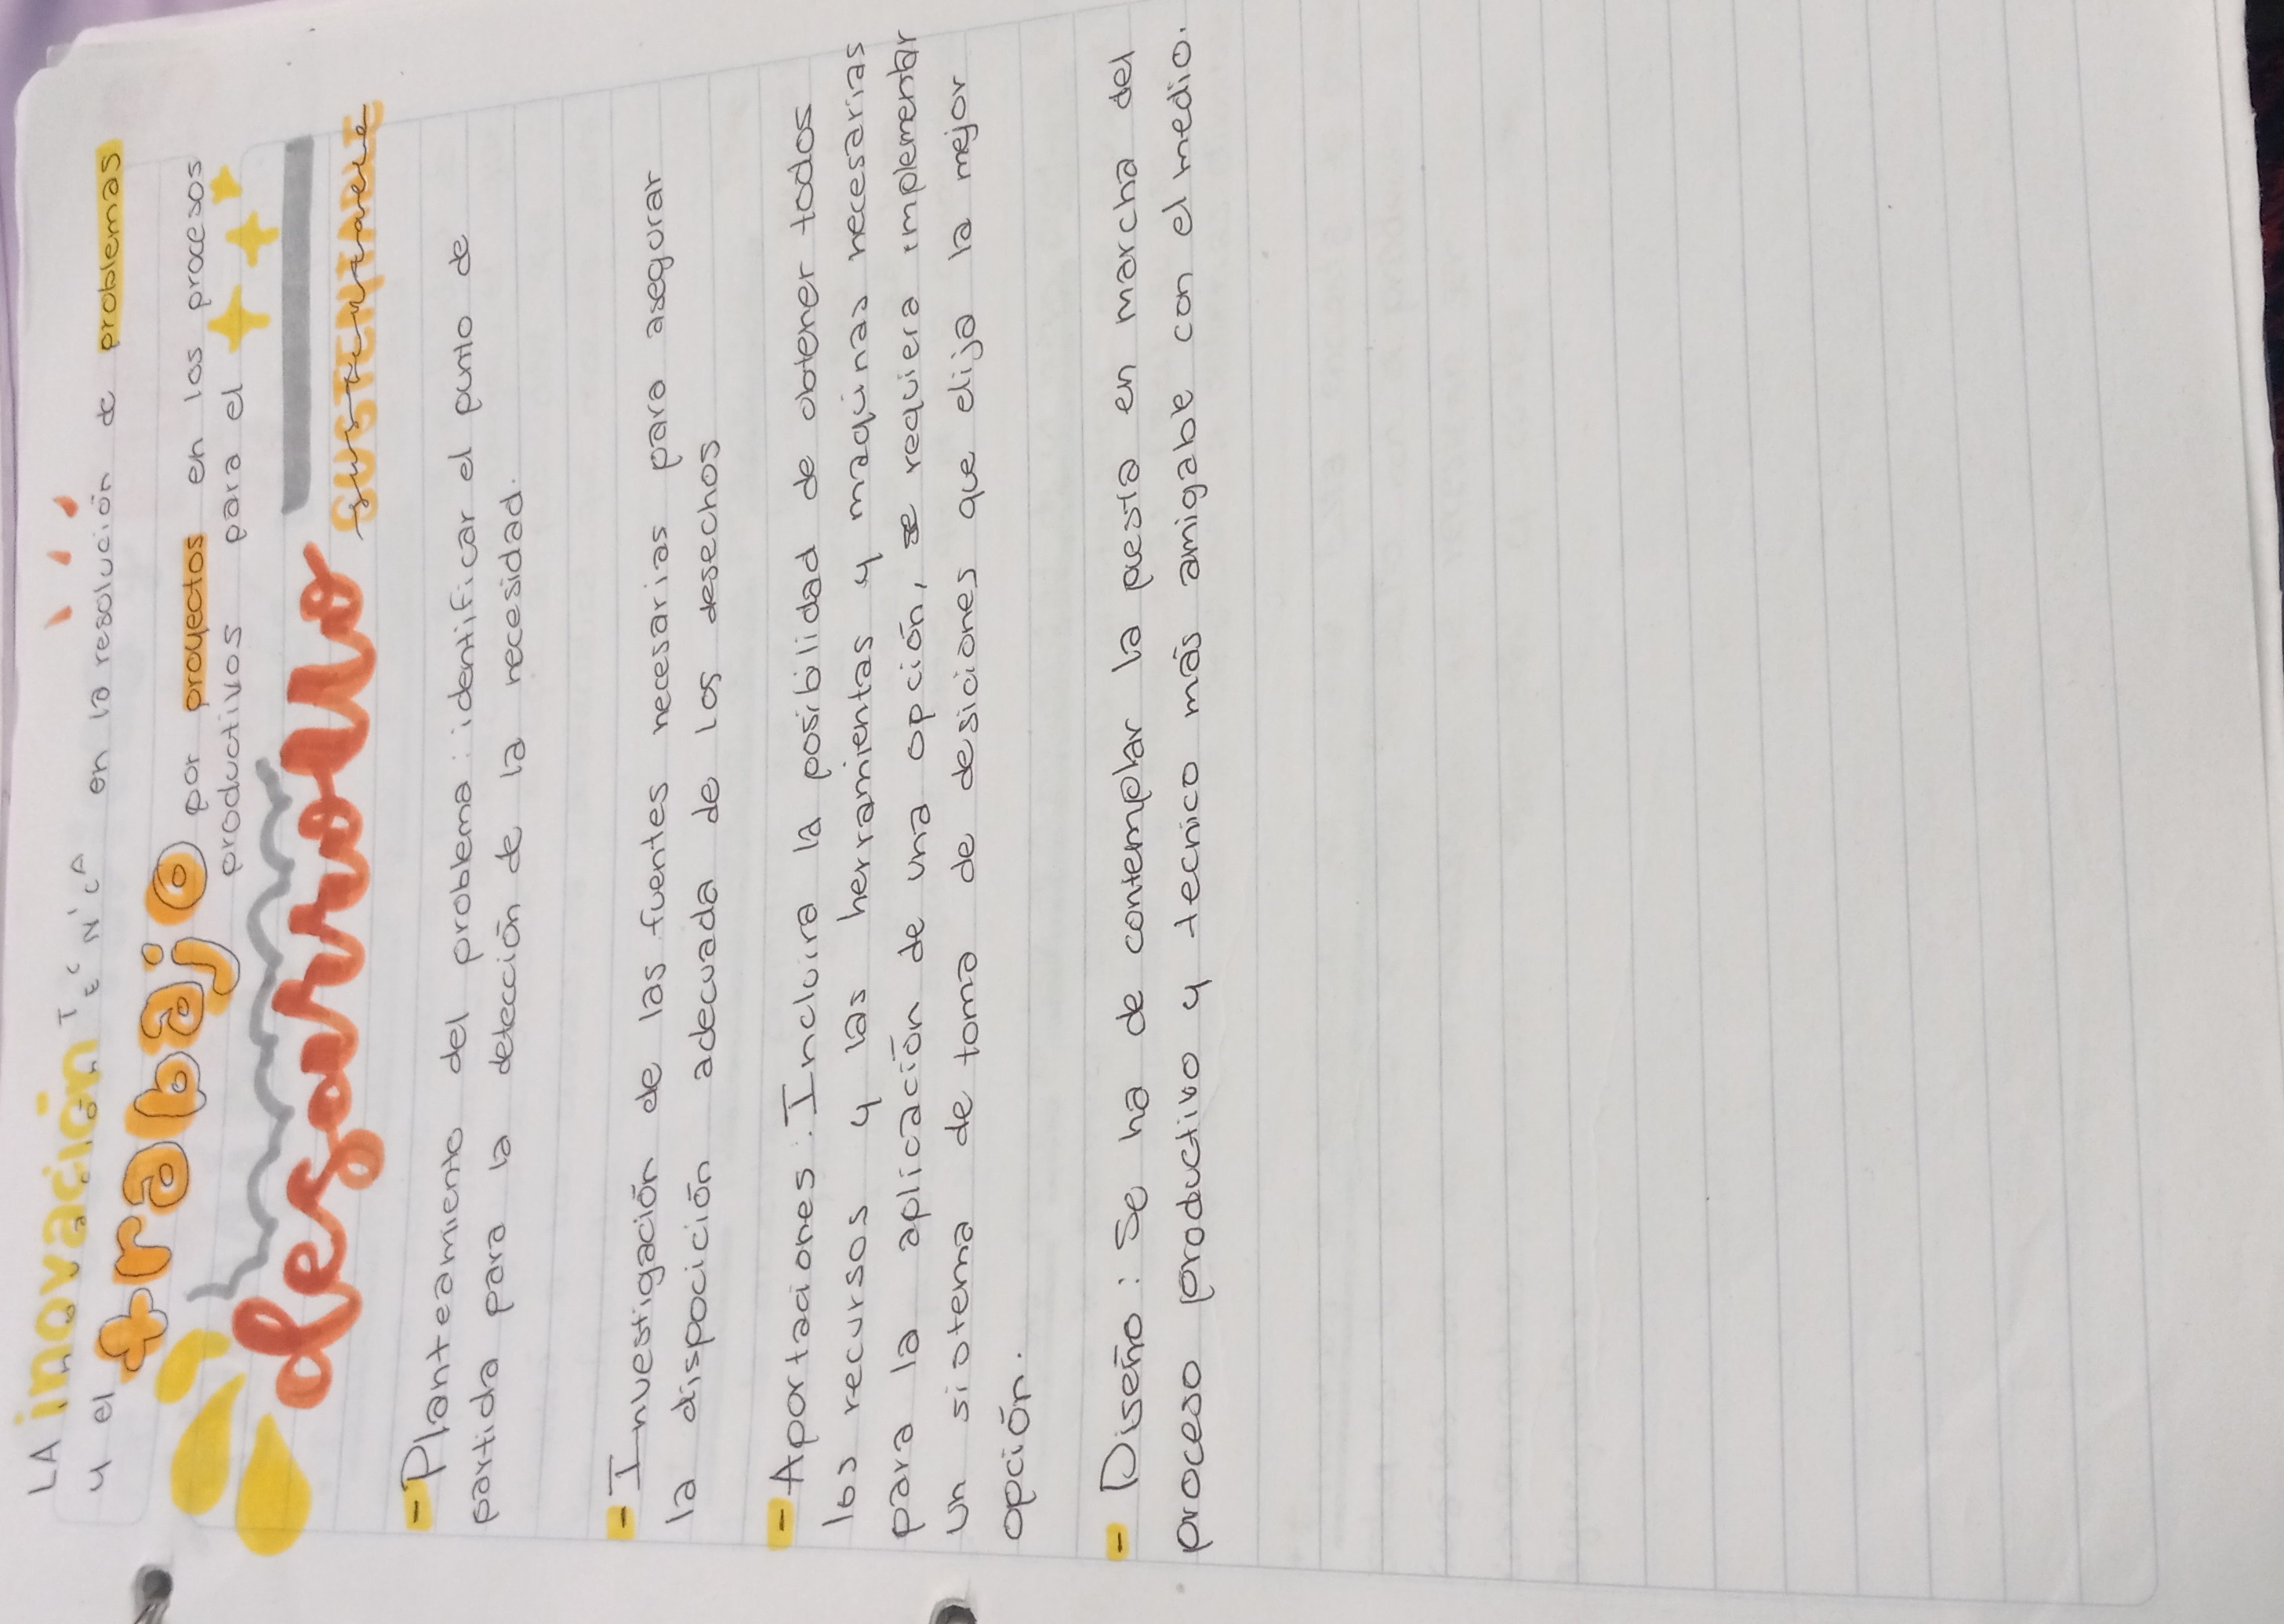 LA inovación TECNICA en la resolución de problemas
y el trabajo por proyectos en los procesos
productivos para el
desarrollo SUSTENTABLE
- Planteamiento del problema: identificar el punto de
partida para la detección de la necesidad.
- Investigación de las fuentes necesarias para asegurar
la dispocición adecuada de los desechos
- Aportaciones: Incluira la posibilidad de obtener todos
los recursos y las herramientas y maquinas necesarias
para la aplicación de una opción, se requiera implementar
un sistema de toma de desiciones que elija la mejor
opción.
- Diseño: Se ha de contemplar la puesta en marcha del
proceso productivo y tecnico más amigable con el medio.